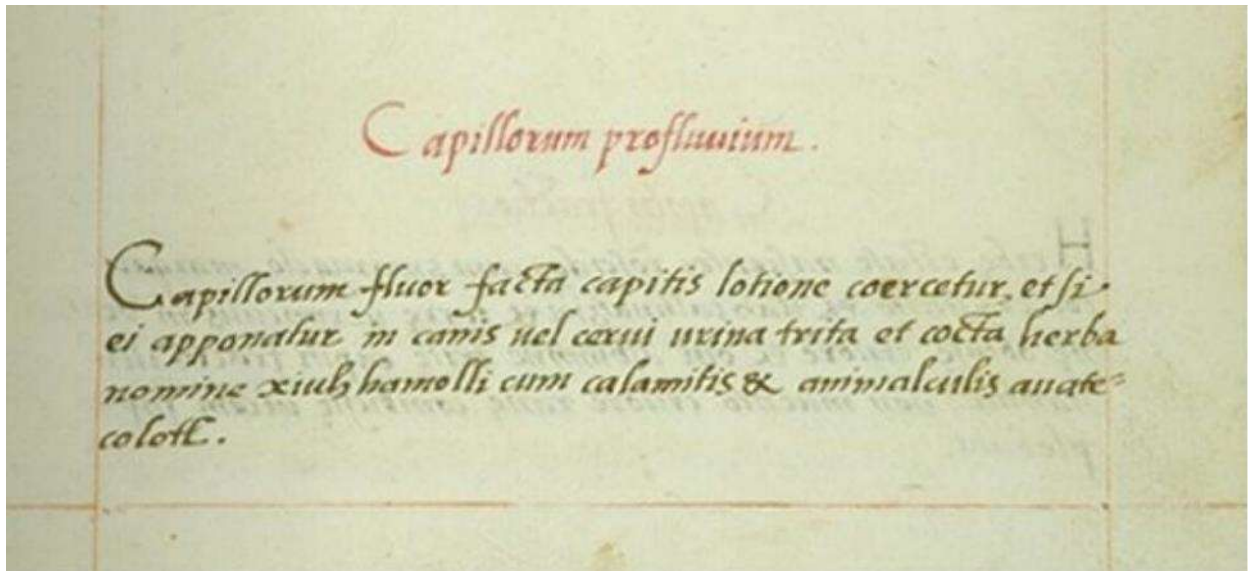 Capillorum profluuium.
Capillorum fluor facta capitis lotione coercetur, et si
ei apponatur in canis uel cerui urina trita et cocta herba
nomine xiuhhamolli cum calamitis & animalculis auate=
colotl.